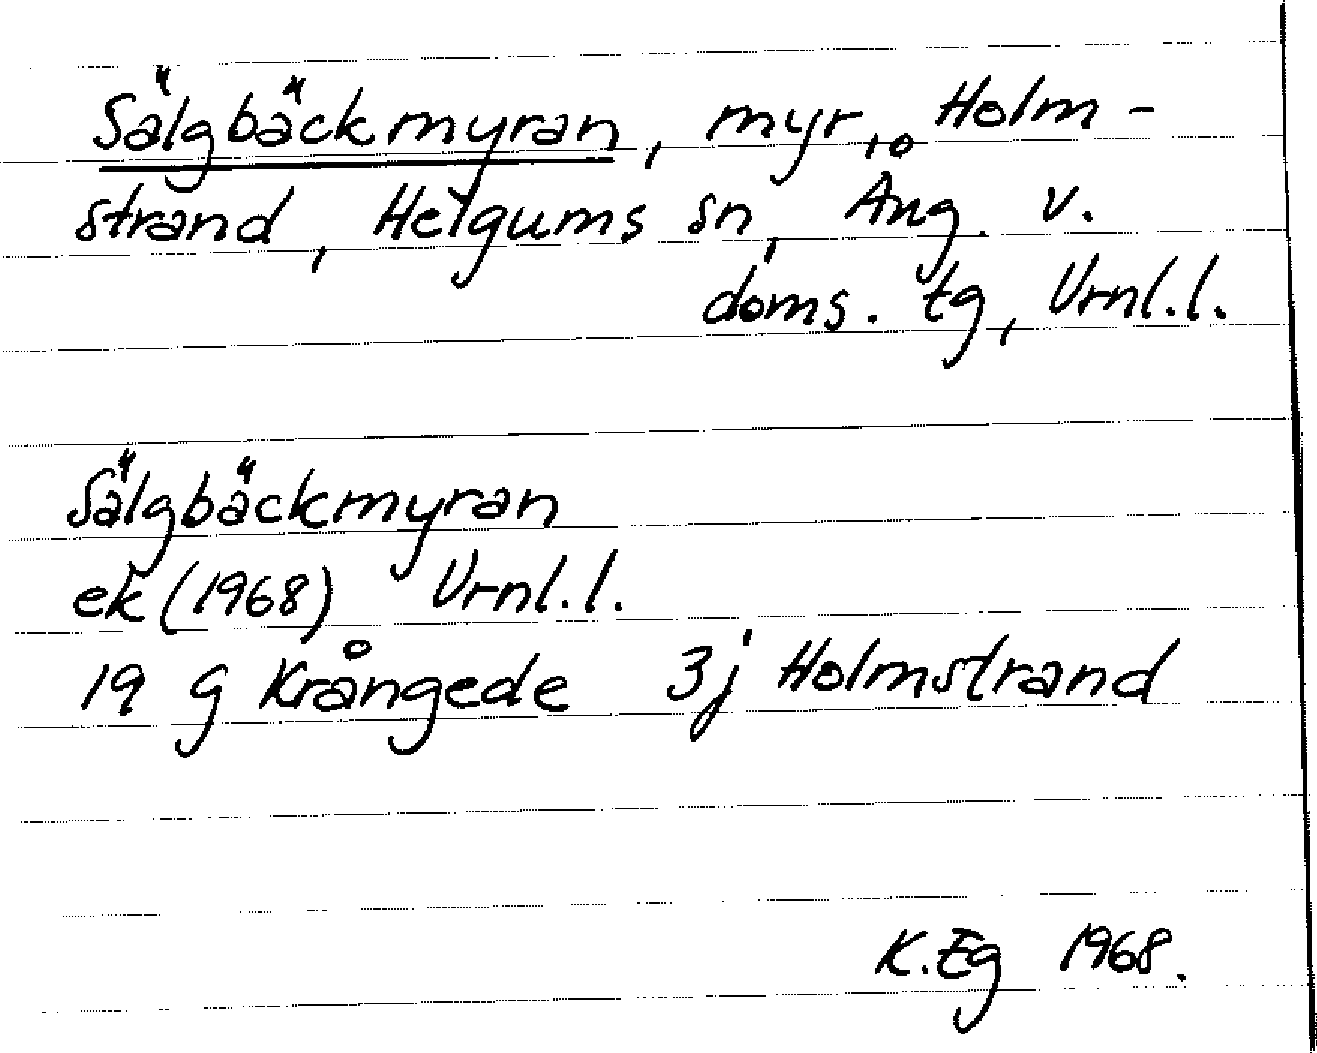 Sälgbäckmyran, myr, Holm-
strand, Helgums sn, Ång. v.
doms. tg, Vrnl.l.
Sälgbäckmyran
ek (1968) Vrnl.l.
19 g Krångede 3j Holmstrand
K.Eg 1968.